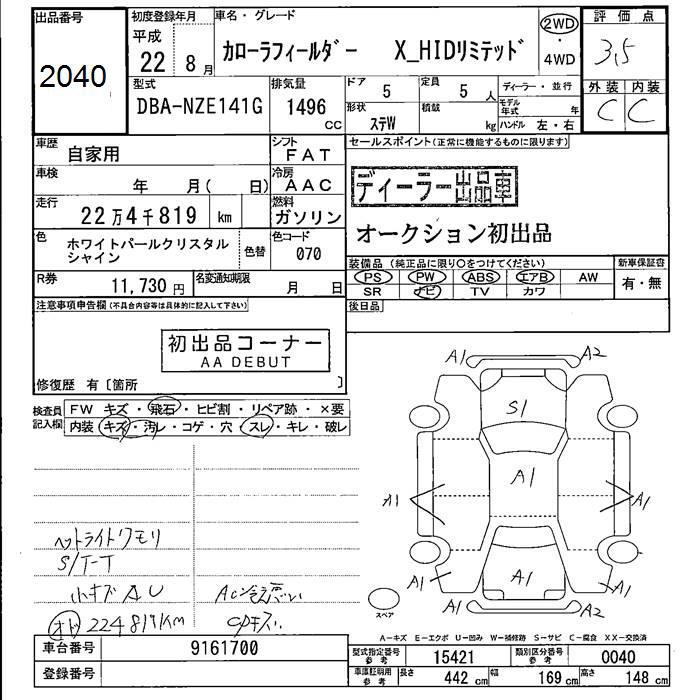 出品番号
2040
初度登録年月
平成
22 8月
車名・グレード
カローラフィールダー X_HIDリミテッド
2WD
・
4WD
評価点
3.5
外装 内装
C C
型式
DBA-NZE141G
排気量
1496
cc
ドア 5
定員 5 人
形状 ステW
積載 kg
ディーラー・並行
モデル年式 年
ハンドル 左・右
車歴 自家用
シフト FAT
車検 年 月( 日)
冷房 AAC
走行 22万4千819 km
燃料 ガソリン
色 ホワイトパールクリスタルシャイン
色替
色コード 070
R券 11,730円
名変通知期限 月 日
セールスポイント(正常に機能するものに限ります)
ディーラー出品車
オークション初出品
装備品(純正品に限り○をつけてください)
PS PW ABS エアB AW
SR ナビ TV カワ
新車保証書
有・無
後日品
注意事項申告欄(不具合内容等は具体的に記入して下さい)
初出品コーナー
AA DEBUT
修復歴 有〔箇所 〕
検査員記入欄
FW キズ・飛石・ヒビ割・リペア跡・×要
内装 キズ・汚レ・コゲ・穴・スレ・キレ・破レ
ヘットライトクモリ
S/T-T
小キズ AU
オド 224819KM
AC冷え悪い
A1 A2
S1
A1
A1 A1
A1
A1 A1
A1 A2
スペア
A-キズ E-エクボ U-凹み W-補修跡 S-サビ C-腐食 XX-交換済
車台番号 9161700
登録番号
型式指定番号 参考 15421
類別区分番号 参考 0040
車庫証明用 参考
長さ 442 cm
幅 169 cm
高さ 148 cm